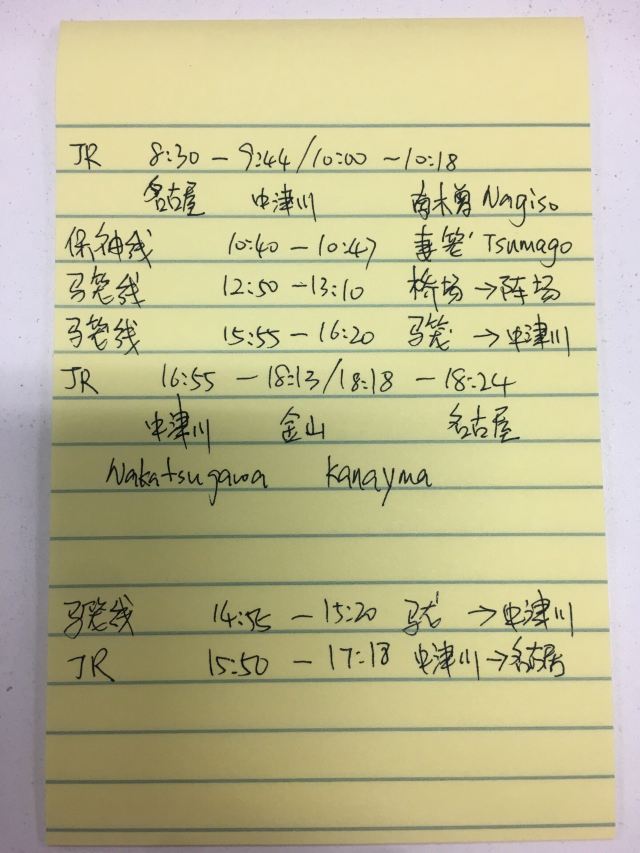 JR 8:30 — 9:44 / 10:00 ~ 10:18
名古屋 中津川 南木曽 Nagiso
保神线 10:40 — 10:47 妻笼 Tsumago
马笼线 12:50 — 13:10 桥场 → 阵场
马笼线 15:55 — 16:20 马笼 → 中津川
JR 16:55 — 18:13 / 18:18 — 18:24
中津川 金山 名古屋
Nakatsugawa Kanayma
马笼线 14:55 — 15:20 马笼 → 中津川
JR 15:50 — 17:18 中津川 → 名古屋